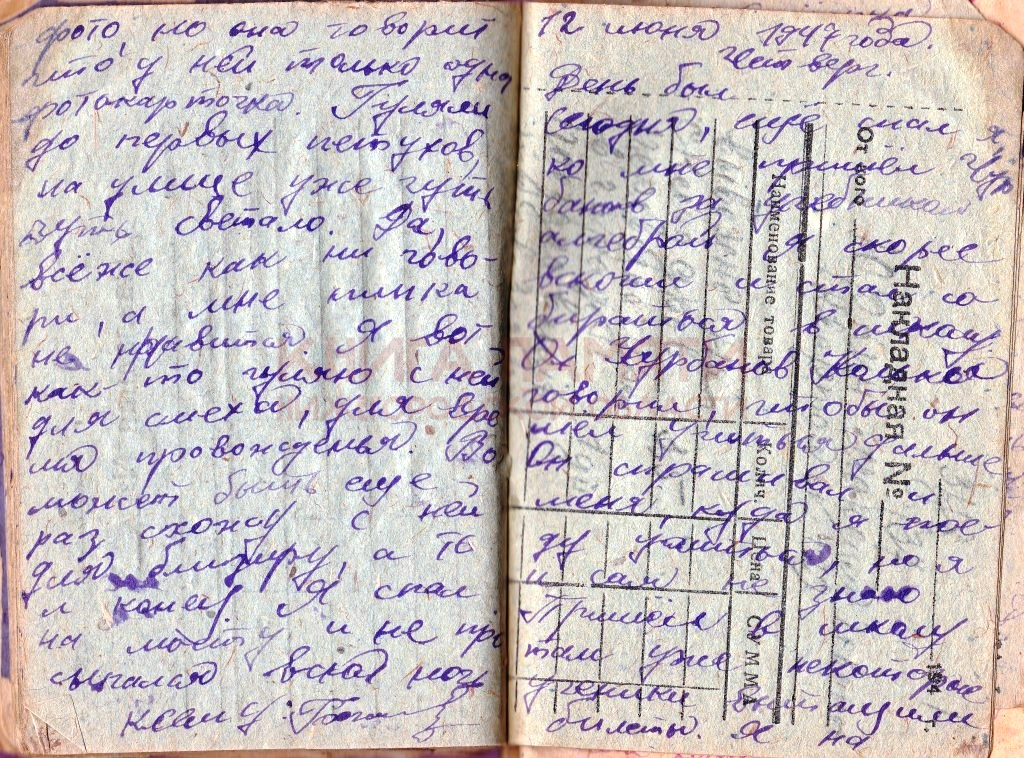 фото, но она говорит
что у ней только одна
фотокарточка. Гуляли
до первых петухов,
на улице уже чуть
чуть светало. Да,
всё же как ни гово-
ри, а мне
не нравится. Я вот
как-то гуляю с ней
для смеха, для вре
мя провожденья. Во
может быть еще
раз схожу с ней
для блезиру, а то
и конец. Я спал
на мосту и не про
сыпался всю ночь
12 июня 1947 года.
Четверг.
День был
Сегодня, еще спал я,
ко мне пришёл Кур
банов за учебником
алгебры. Я скорее
вскочил и стал со
бираться в школу.
От Курбанов
говорил, чтобы он
шел учиться дальше
Он спрашивал и
меня, куда я пое-
ду учиться, но я
и сам не знаю
Пришёл в школу
там уже некоторые
ученики вытащили
билеты. Я на
Накладная №
От кого
194 г.
Наименование товара
Колич.
Цена
СУММА